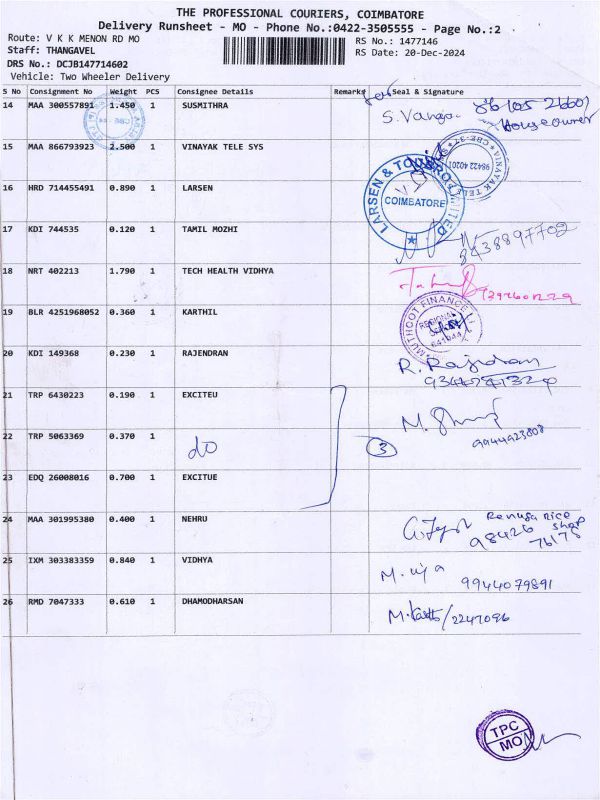 THE PROFESSIONAL COURIERS, COIMBATORE
Delivery Runsheet - MO - Phone No.:0422-3505555 - Page No.:2
Route: V K K MENON RD MO
RS No.: 1477146
Staff: THANGAVEL
RS Date: 20-Dec-2024
DRS No.: DCJB147714602
Vehicle: Two Wheeler Delivery
S No Consignment No Weight PCS Consignee Details Remarks Seal & Signature
14 MAA 300557891 1.450 1 SUSMITHRA S. Vanga
House owner
15 MAA 866793923 2.500 1 VINAYAK TELE SYS
VINAYAK TELE
98422 40201
16 HRD 714455491 0.890 1 LARSEN
LARSEN & TOUBRO LIMITED
COIMBATORE
17 KDI 744535 0.120 1 TAMIL MOZHI
8438897702
18 NRT 402213 1.790 1 TECH HEALTH VIDHYA
19 BLR 4251968052 0.360 1 KARTHIL
MUTHOOT FINANCE
REGIONAL
20 KDI 149368 0.230 1 RAJENDRAN R. Rajendran
21 TRP 6430223 0.190 1 EXCITEU
9944923808
22 TRP 5063369 0.370 1 do 3
23 EDQ 26008016 0.700 1 EXCITUE
24 MAA 301995380 0.400 1 NEHRU
rice shop
98426 76178
25 IXM 303383359 0.840 1 VIDHYA
9944079891
26 RMD 7047333 0.610 1 DHAMODHARSAN
/2247096
TPC
MO